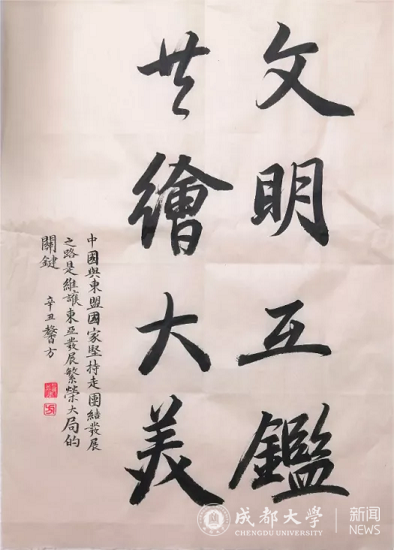 文明互鑑
共繪大美
中國與東盟國家堅持走團結發展
之路是維護東亞發展繁榮大局的
關鍵 辛丑 方
成都大学 新闻
CHENGDU UNIVERSITY NEWS